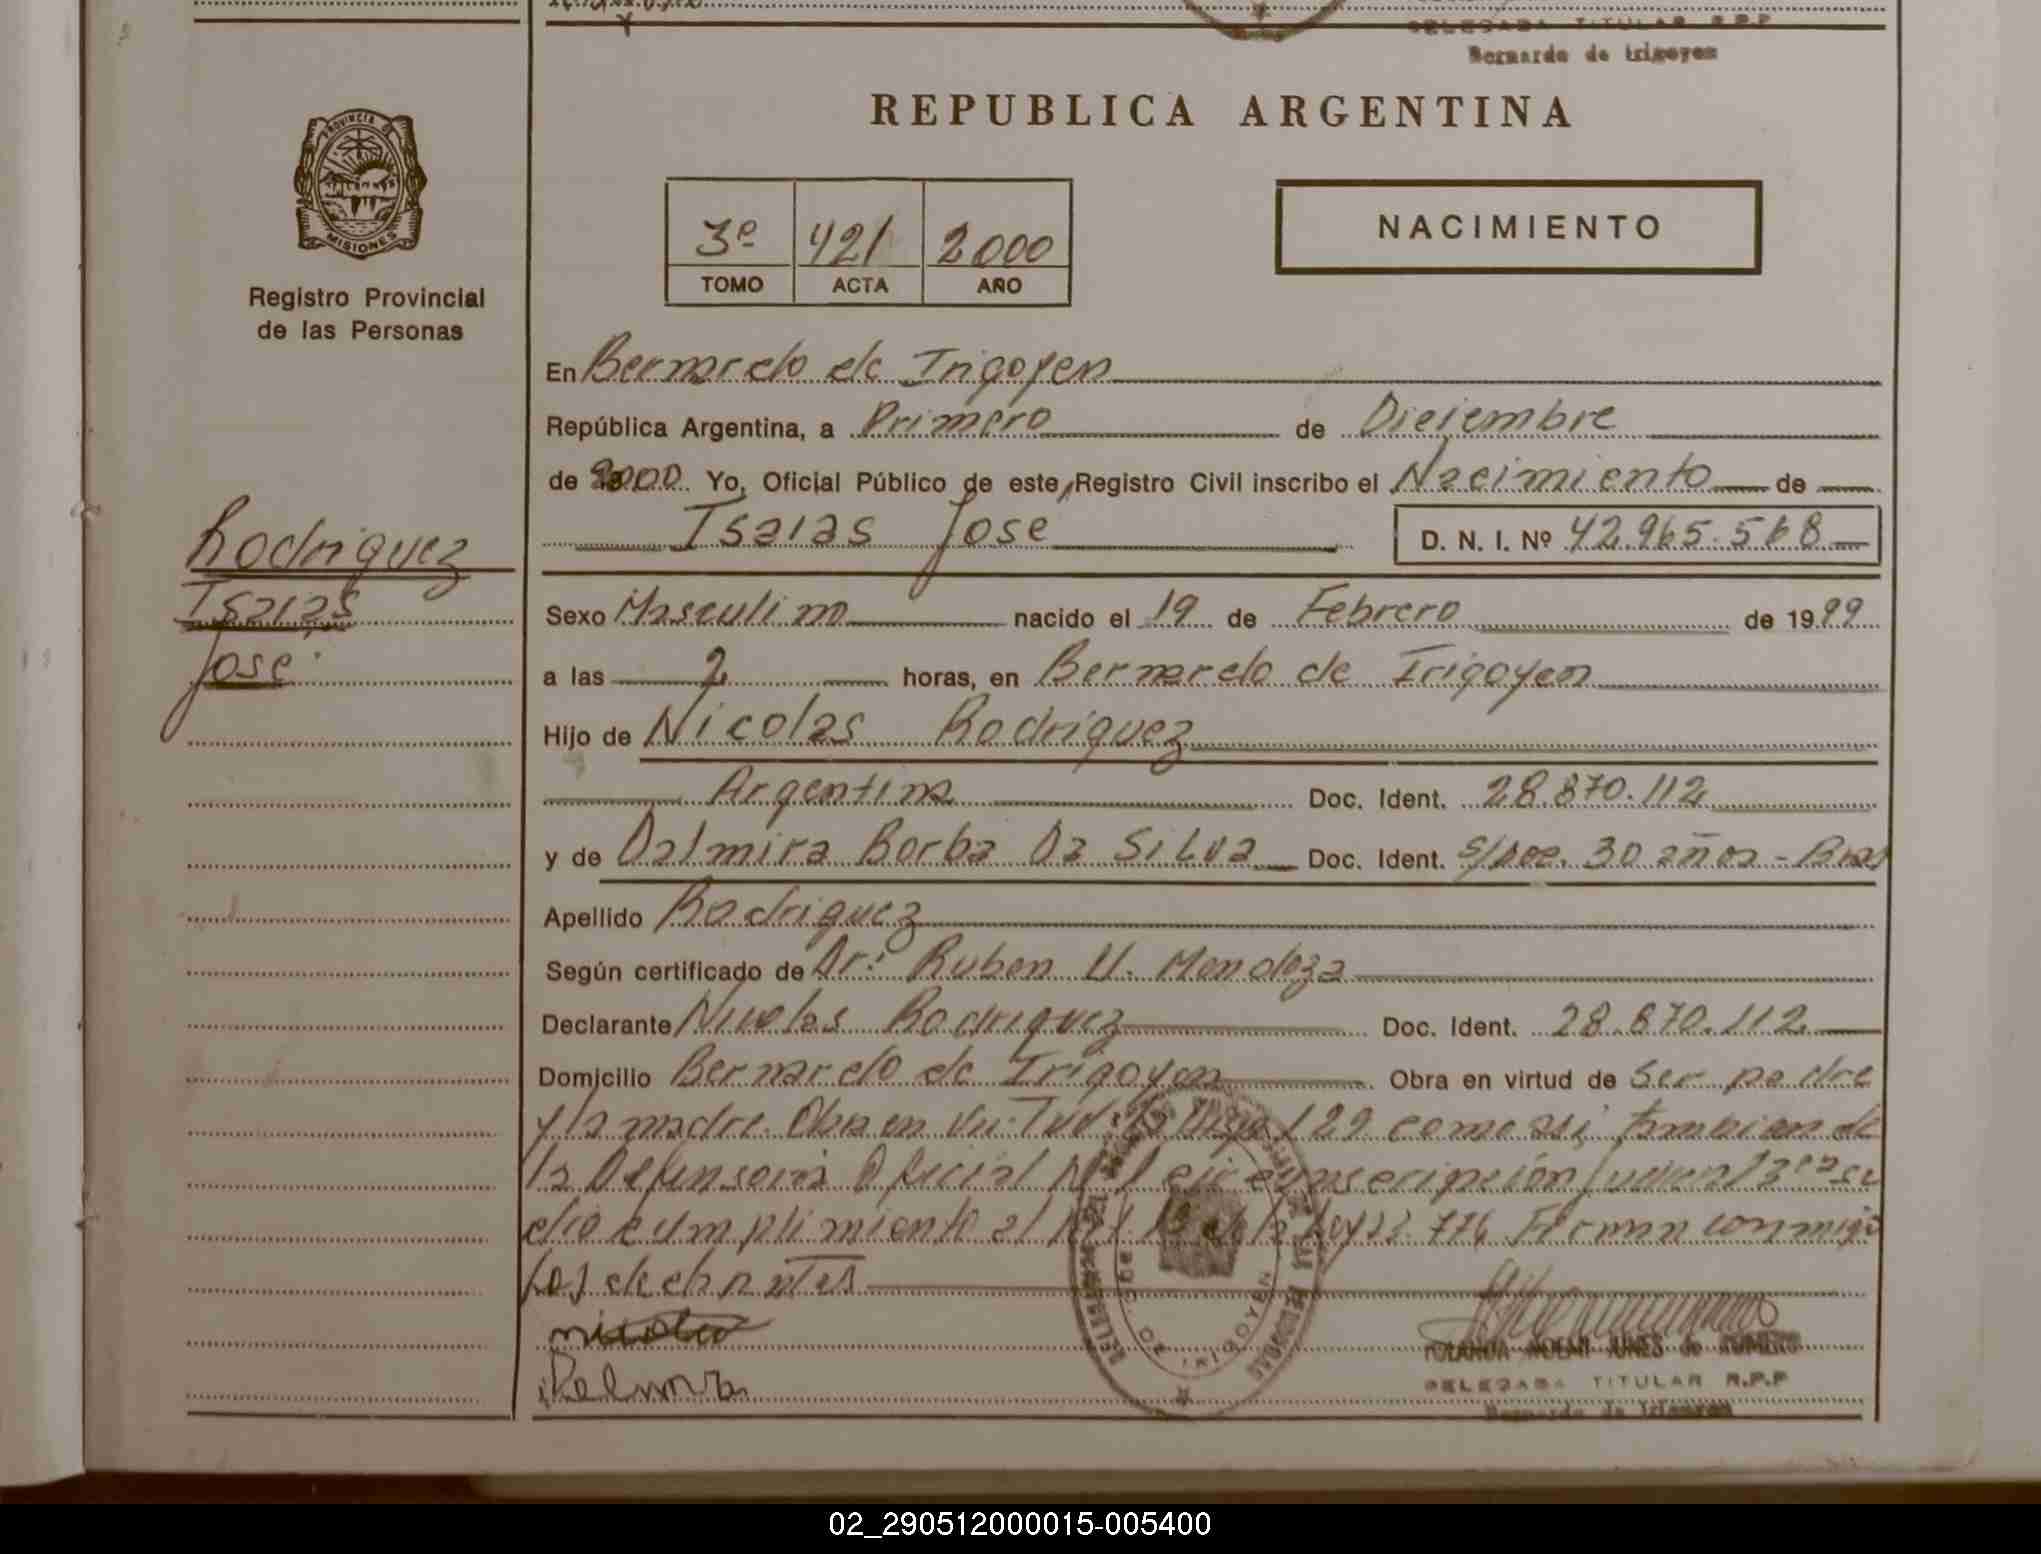 DELEGADA TITULAR R.P.P
Bernardo de Irigoyen
REPUBLICA ARGENTINA
PROVINCIA DE
MISIONES
Registro Provincial
de las Personas
3º 421 2000
TOMO ACTA AÑO
NACIMIENTO
En Bernardo de Irigoyen
República Argentina, a Primero de Diciembre
de 2000 Yo, Oficial Público de este Registro Civil inscribo el Nacimiento de
Isaias Jose D. N. I. Nº 42.965.568
Rodriguez
Isaias
Jose
Sexo Masculino nacido el 19 de Febrero de 1999
a las 2 horas, en Bernardo de Irigoyen
Hijo de Nicolas Rodriguez
Argentina Doc. Ident. 28.870.112
y de Dalmira Borba Da Silva Doc. Ident. S/Doc. 30 años - Bras
Apellido Rodriguez
Según certificado de Dr. Ruben U. Mendoza
Declarante Nicolas Rodriguez Doc. Ident. 28.870.112
Domicilio Bernardo de Irigoyen Obra en virtud de ser padre
y la madre. Obra en Virtud 129 como asi tambien de
la Defensoria Oficial circunscripción Judicial 3ra se
dio cumplimiento al de la Ley 23.776 Firman conmigo
los declarantes
Dalmira
DE IRIGOYEN
DELEGADA TITULAR R.P.P
Bernardo de Irigoyen
02_290512000015-005400